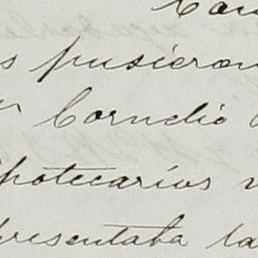 s pusieron
Cornelio
potecarios
presentaba la